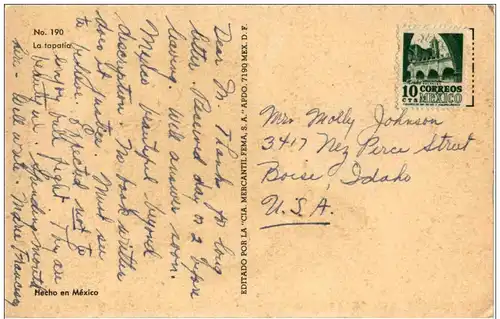 No. 190
La tapatía
Dear M. Thanks for long
letter. Received day or 2 before
leaving will answer soon.
Mexico beautiful beyond
description. No book written
does it justice. Must see
to believe. Expected not to
enjoy bull fight by
Spending month
here - Will write.
Hecho en México
EDITADO POR LA "CIA. MERCANTIL FEMA, S. A." APDO. 7190 MEX. D. F.
10 CORREOS
CTS MEXICO
Mrs Molly Johnson
3417 Nez Perce Street
Boise, Idaho
U.S.A.